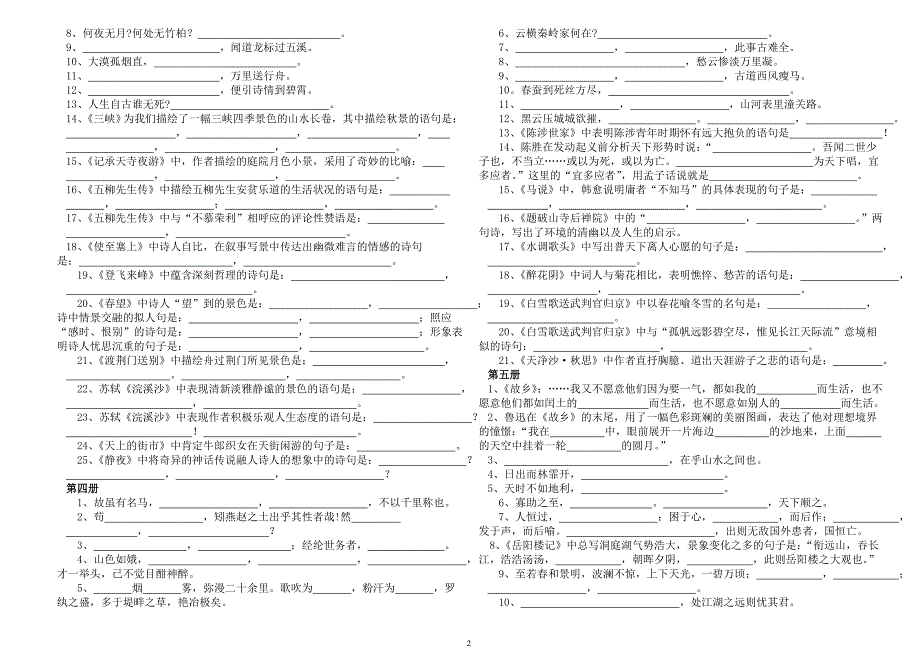 8、何夜无月?何处无竹柏？__________________________。
9、_________________________，闻道龙标过五溪。
10、大漠孤烟直，_________________________。
11、_________________________，万里送行舟。
12、_________________________，便引诗情到碧霄。
13、人生自古谁无死?_________________________。
14、《三峡》为我们描绘了一幅三峡四季景色的山水长卷，其中描绘秋景的语句是：
____________________，______________________，______________________，____
__________________。
15、《记承天寺夜游》中，作者描绘的庭院月色小景，采用了奇妙的比喻：____
__________________，______________________，______________________。
16、《五柳先生传》中描绘五柳先生安贫乐道的生活状况的语句是：___________
________，______________；______________，____________________。
17、《五柳先生传》中与“不慕荣利”相呼应的评论性赞语是：______________
____________________，____________________。
18、《使至塞上》中诗人自比，在叙事写景中传达出幽微难言的情感的诗句
是：__________________，____________________________。
19、《登飞来峰》中蕴含深刻哲理的诗句是：____________________________，
__________________________________。
20、《春望》中诗人“望”到的景色是：__________________，__________________；
诗中情景交融的拟人句是：____________________，____________________；照应
“感时、恨别”的诗句是：____________________，____________________；形象表
明诗人忧思沉重的句子是：____________________，____________________。
21、《渡荆门送别》中描绘舟过荆门所见景色是：__________________，______
__________________。__________________，____________________。
22、苏轼《浣溪沙》中表现清新淡雅静谧的景色的语句是：__________________，
__________________，__________________。
23、苏轼《浣溪沙》中表现作者积极乐观人生态度的语句是：__________________？
______________________！______________________。
24、《天上的街市》中肯定牛郎织女在天街闲游的句子是：______________。
25、《静夜》中将奇异的神话传说融人诗人的想象中的诗句是：______________？
____________________，____________________？
第四册
1、故虽有名马，____________________，____________________，不以千里称也。
2、苟__________________，矧燕赵之士出乎其性者哉!然________
______________，__________________？
3、______________，__________________；经纶世务者，________________。
4、山色如娥，__________________，__________________，__________________，
才一举头，己不觉目酣神醉。
5、________烟________雾，弥漫二十余里。歌吹为__________，粉汗为________，罗
纨之盛，多于堤畔之草，艳冶极矣。
6、云横秦岭家何在?__________________________。
7、____________________，____________________，此事古难全。
8、____________________________，愁云惨淡万里凝。
9、__________________，__________________，古道西风瘦马。
10。春蚕到死丝方尽，______________________。
11、______________，__________________，山河表里潼关路。
12、黑云压城城欲摧，______________________。______________________，
13、《陈涉世家》中表明陈涉青年时期怀有远大抱负的语句是________________！
14、陈胜在发动起义前分析天下形势时说：“__________________。吾闻二世少
子也，不当立……或以为死，或以为亡。________________________为天下唱，宜
多应者。”这里的“宜多应者”，用孟子话说就是____________________
15、《马说》中，韩愈说明庸者“不知马”的具体表现的句子是：____________
______________，______________________，______________________。
16、《题破山寺后禅院》中的“__________________，__________________。”两
句诗，写出了环境的清幽以及人生的启示。
17、《水调歌头》中写出普天下离人心愿的句子是：________________________，
______________________。
18、《醉花阴》中词人与菊花相比，表明憔悴、愁苦的语句是：______________，
______________，______________________。
19、《白雪歌送武判官归京》中以春花喻冬雪的名句是：__________________，
______________________。
20、《白雪歌送武判官归京》中与“孤帆远影碧空尽，惟见长江天际流”意境相
似的诗句：__________________，____________________。
21、《天净沙·秋思》中作者直抒胸臆、道出天涯游子之悲的语句是：__________。
第五册
1、《故乡》：……我又不愿意他们因为要一气，都如我的__________而生活，也不
愿意他们都如闰土的____________而生活，也不愿意如别人的__________而生活。
2、鲁迅在《故乡》的末尾，用了一幅色彩斑斓的美丽图画，表达了他对理想境界
的憧憬：“我在__________中，眼前展开一片海边__________的沙地来，上面______
的天空中挂着一轮__________的圆月。”
3、__________________，__________________，在乎山水之间也。
4、日出而林霏开，______________________
5、天时不如地利，______________________。
6、寡助之至。__________________。__________________，天下顺之。
7、人恒过，______________；困于心，______________，而后作；__________，
发于声，而后喻。__________________，__________，出则无敌国外患者，国恒亡。
8、《岳阳楼记》中总写洞庭湖气势浩大，景象变化之多的句子是：“衔远山，吞长
江，浩浩汤汤，______________，朝晖夕阴，______________，此则岳阳楼之大观也。”
9、至若春和景明，波澜不惊，上下天光，一碧万顷；______________，__________，
______________，______________。
10、______________，______________，处江湖之远则忧其君。
2